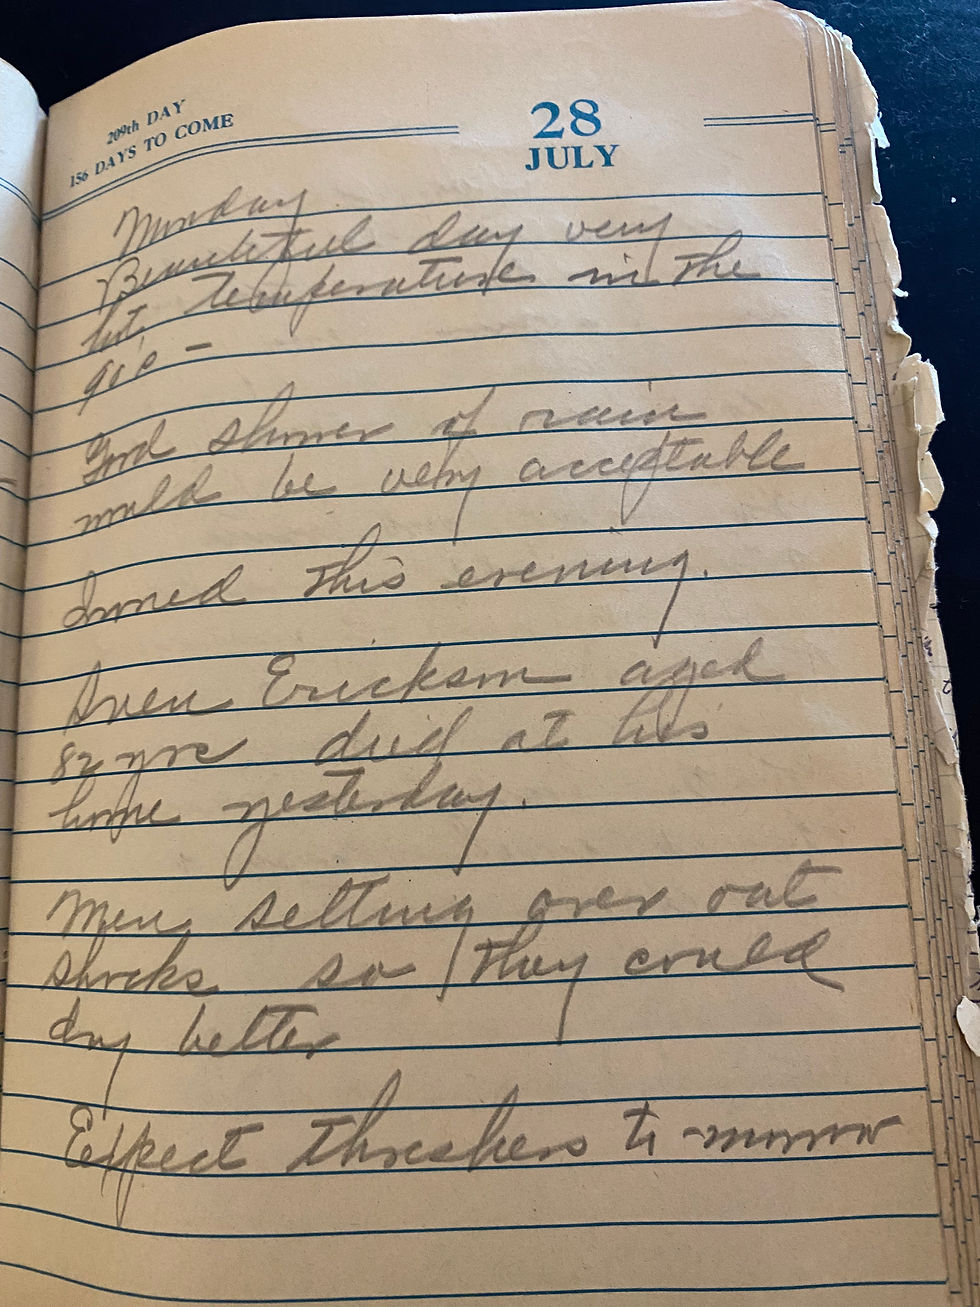 209th DAY
156 DAYS TO COME
28
JULY
Monday
Beautiful day very
hot, temperature in the
90's -
Good shower of rain
would be very acceptable
Ironed this evening.
Sven Erickson aged
82 yrs died at his
home yesterday.
Men setting over oat
shocks so they could
dry better
Expect threshers to-morrow